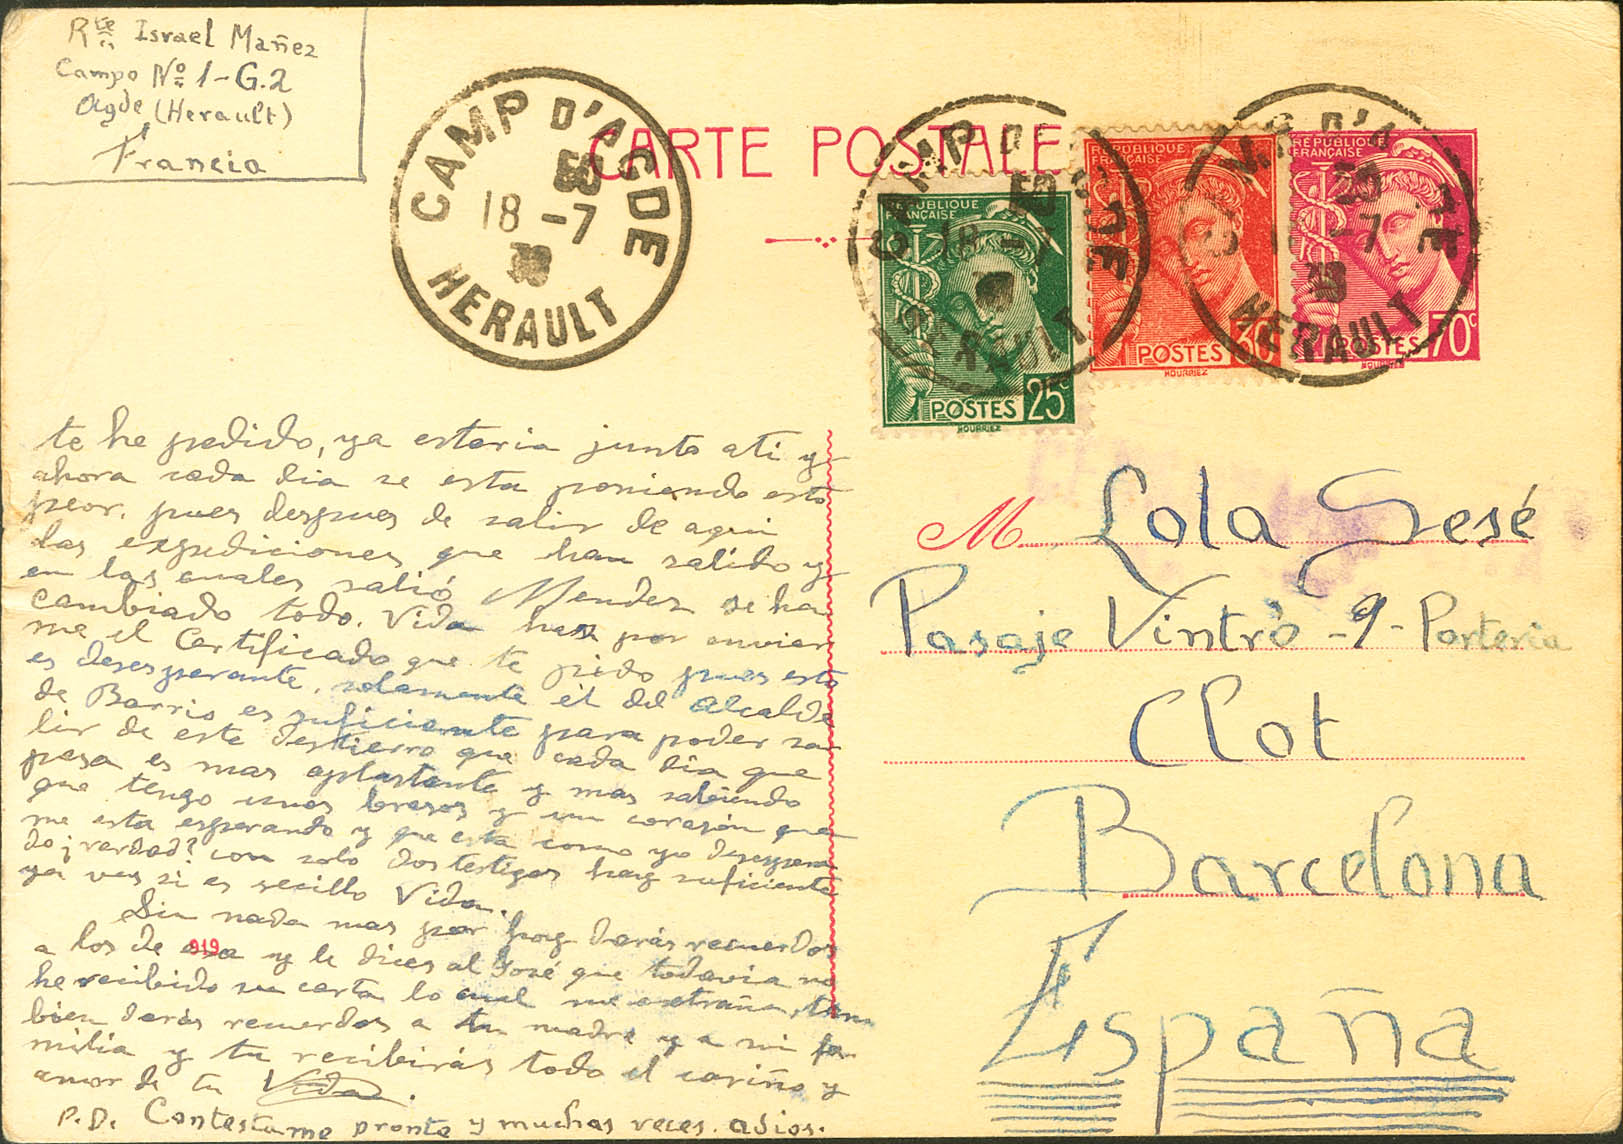 Rte Israel Mañez
Campo Nº 1-G.2
Agde (Herault)
Francia
CAMP D'AGDE
18 -7
HERAULT
CARTE POSTALE
RÉPUBLIQUE
FRANÇAISE
POSTES 25c
HOURRIEZ
POSTES 30c
HOURRIEZ
RÉPUBLIQUE
FRANÇAISE
POSTES 70c
HOURRIEZ
CAMP D'AGDE
18 -7
HERAULT
-7
HERAULT
te he pedido, ya estaria junto ati y
ahora cada dia se esta poniendo esto
peor, pues despues de salir de aqui
las expediciones que han salido y
en las cuales salió Mendez se ha
cambiado todo. Vida haz por enviar
me el Certificado que te pido pues esto
es desesperante, solamente el del alcalde
de Barrio es suficiente para poder sa
lir de este destierro que cada dia que
pasa es mas aplastante y mas sabiendo
que tengo unos brazos y un corazón que
me esta esperando y que esta como yo desespera
do ¡verdad? con solo dos testigos hay suficiente
ya ves si es secillo Vida.
Sin nada mas por hoy darás recuerdos
a los de esa y le dices al José que todavia no
919
he recibido su carta lo cual me extraña, tam
bien darás recuerdos a tu madre y a mi fa
milia y tu recibirás todo el cariño y
amor de tu Vida.
P.D. Contestame pronto y muchas veces. adios.
M. Lola Sesé
Pasaje Vintró -9- Porteria
Clot
Barcelona
España